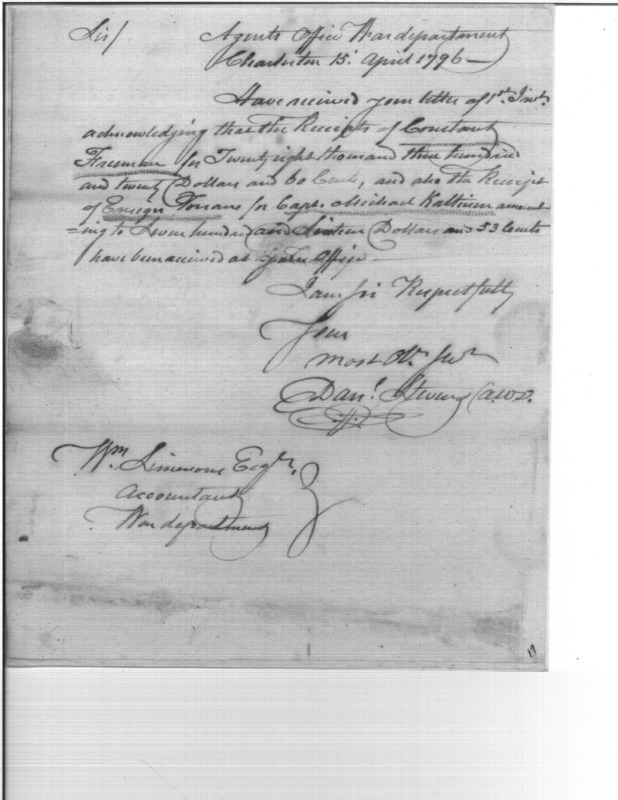 Sir/ Agents Office War department
Charleston 15. April 1796 —
Have received your letter of 1st. Inst.
acknowledging that the Receipts of Constant
Freeman for Twenty eight thousand three hundred
and twenty Dollars and 60 Cents, and also the Receipt
of Ensign for Capt. Michael Kalteisen amount
=ing to Seven hundred and Sixteen Dollars and 53 Cents
have been received at Office —
I am Sir Respectfully
Your
most Ob. Serv
Danl. Stevens A.W.D.
Wm Simmons Esqr.
Accountant
War department